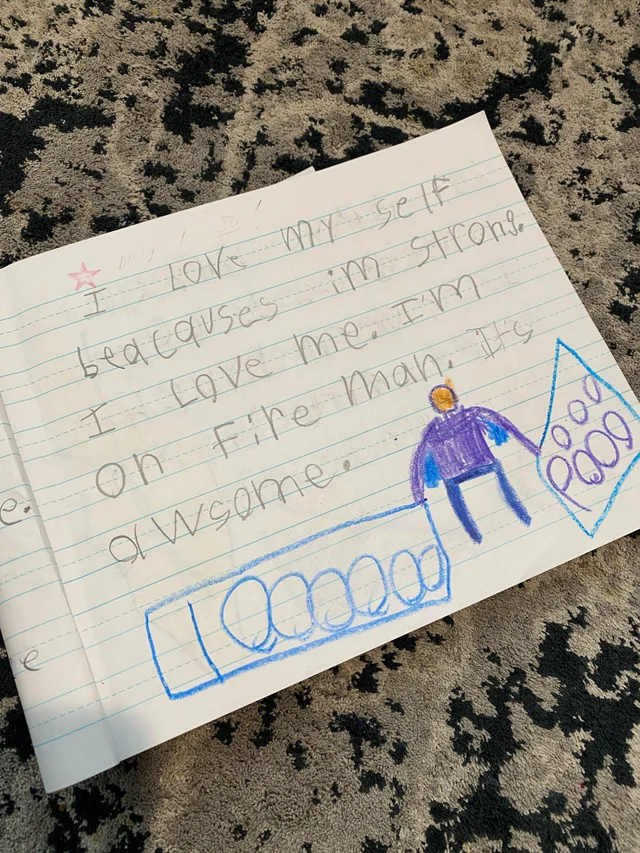 I Love my self
beacauses im strong.
I Love me. I'm
on Fire man. It's
awsome.
e.
e
1000000